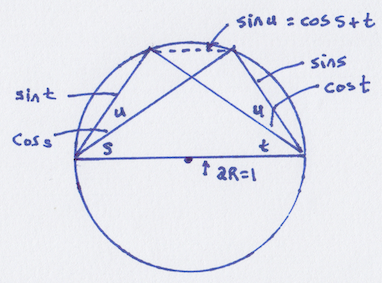 sin u = cos s + t
sin s
cos t
sin t
u
u
cos s
s
t
2R=1